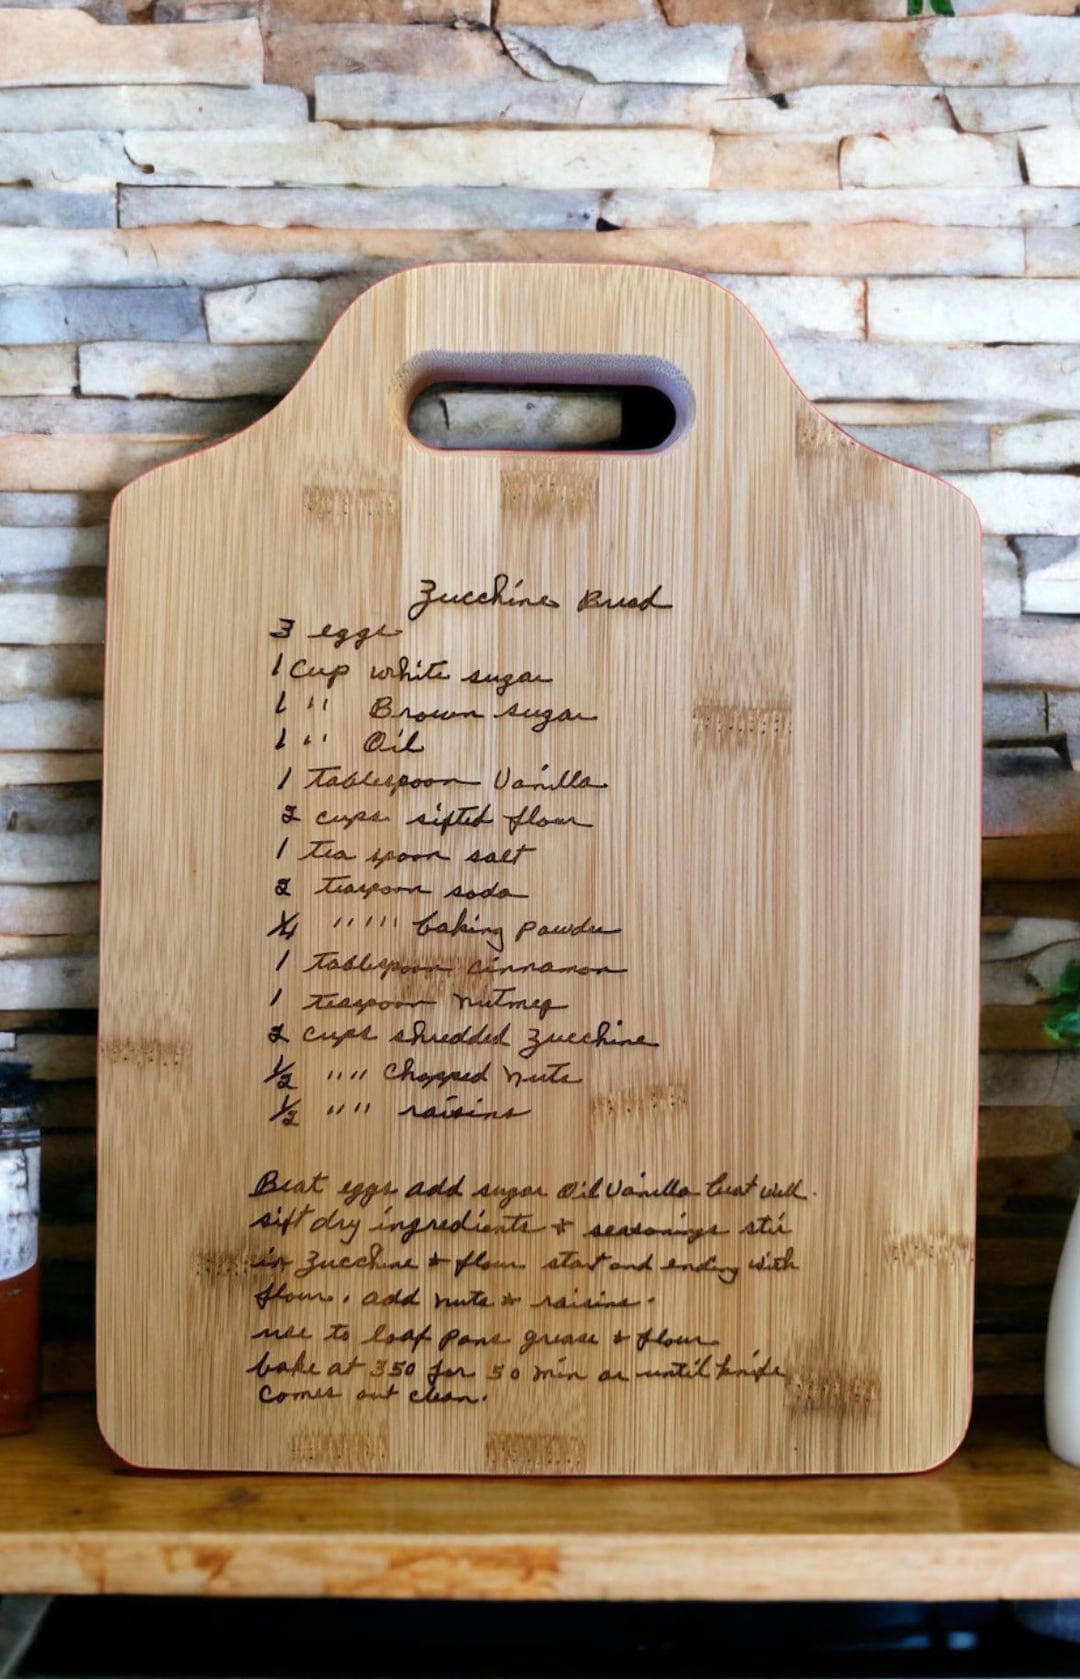 Zucchine Bread
3 eggs
1 Cup white sugar
1 " Brown sugar
1 " Oil
1 tablespoon Vanilla
2 cups sifted flour
1 tea spoon salt
2 teaspoon soda
1/4 " " " baking powder
1 tablespoon cinnamon
1 teaspoon nutmeg
2 cups shredded Zucchine
1/2 " " Chopped nuts
1/2 " " raisins
Beat eggs add sugar Oil Vanilla beat well.
sift dry ingredients + seasonings stir
in Zucchine + flour start and ending with
flour. add nuts + raisins.
use to loaf pans grease + flour
bake at 350 for 50 min or until knife
comes out clean.